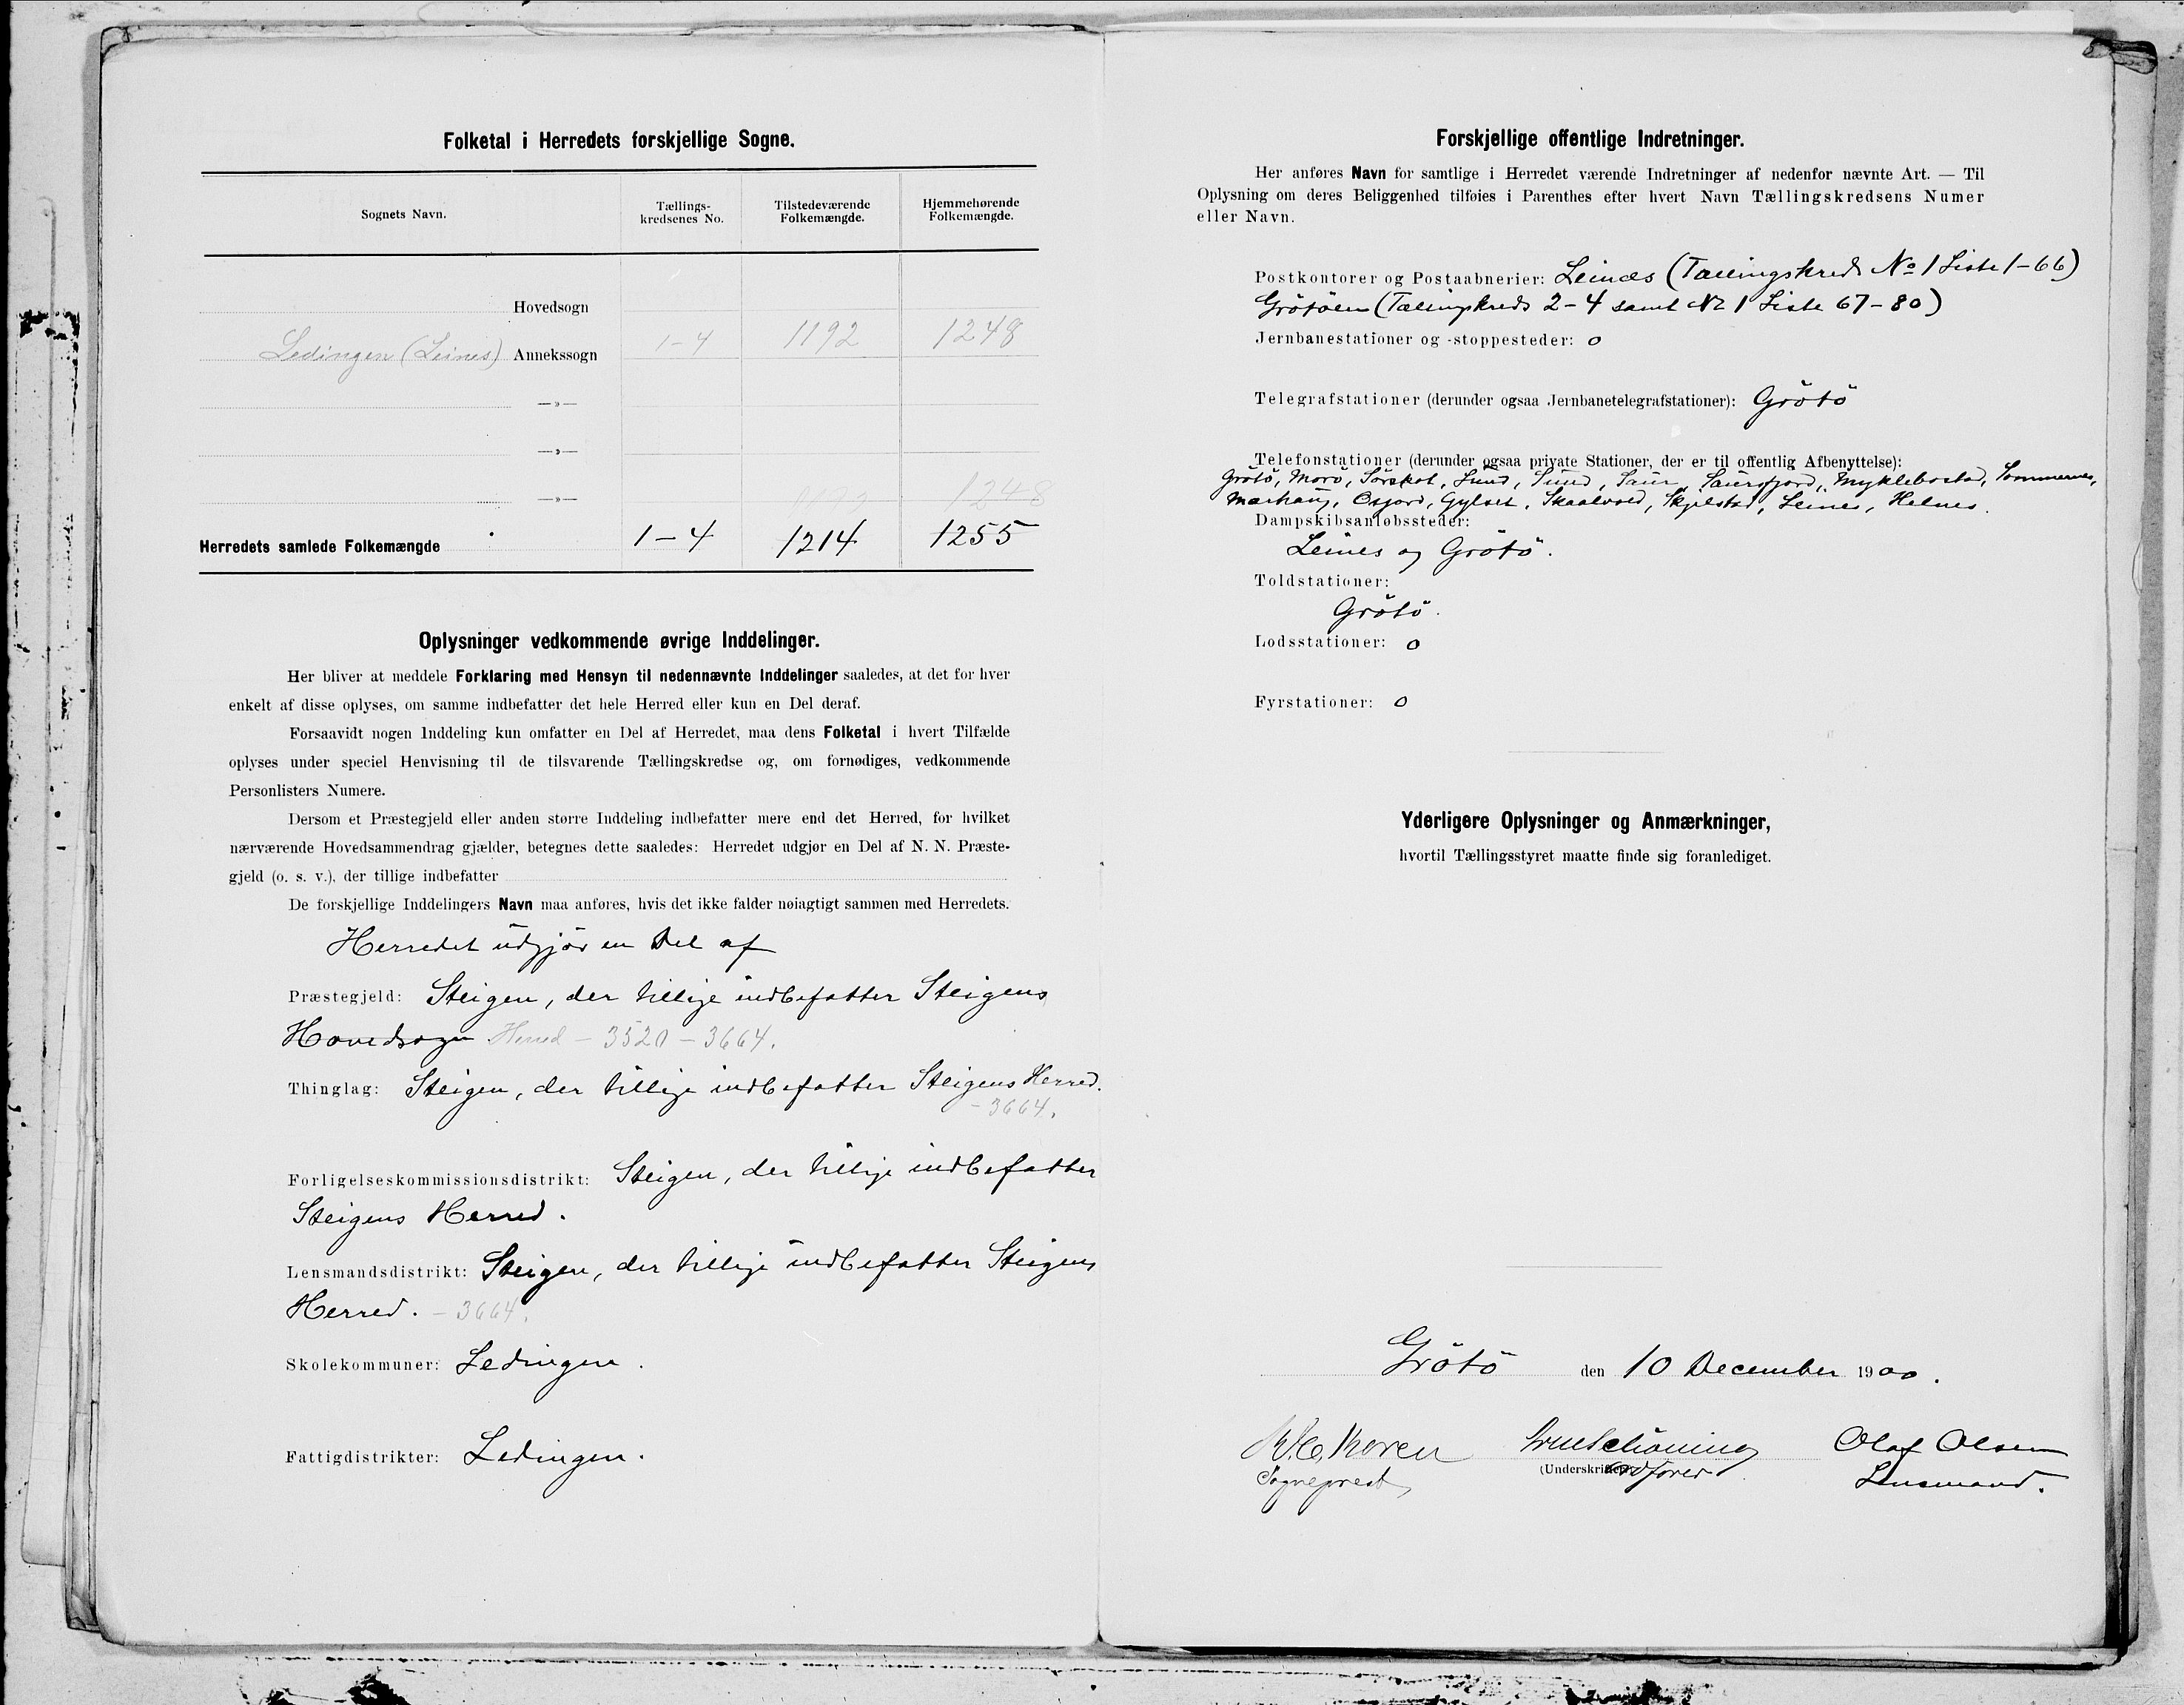 Folketal i Herredets forskjellige Sogne.
Sognets Navn.
Tællings-
kredsenes No.
Tilstedeværende
Folkemængde.
Hjemmehørende
Folkemængde.
Hovedsogn
Ledingen (Leines) Annekssogn 1-4 1192 1248
—»—
—»—
—»— 1192 1248
Herredets samlede Folkemængde 1-4 1214 1255
Oplysninger vedkommende øvrige Inddelinger.
Her bliver at meddele Forklaring med Hensyn til nedennævnte Inddelinger saaledes, at det for hver
enkelt af disse oplyses, om samme indbefatter det hele Herred eller kun en Del deraf.
Forsaavidt nogen Inddeling kun omfatter en Del af Herredet, maa dens Folketal i hvert Tilfælde
oplyses under speciel Henvisning til de tilsvarende Tællingskredse og, om fornødiges, vedkommende
Personlisters Numere.
Dersom et Præstegjeld eller anden større Inddeling indbefatter mere end det Herred, for hvilket
nærværende Hovedsammendrag gjælder, betegnes dette saaledes: Herredet udgjør en Del af N. N. Præste-
gjeld (o. s. v.), der tillige indbefatter
De forskjellige Inddelingers Navn maa anføres, hvis det ikke falder nøiagtigt sammen med Herredets.
Herredet udgjör en Del af
Præstegjeld: Steigen, der tillige indbefatter Steigens
Hovedsogn Herred - 3520 - 3664.
Thinglag: Steigen, der tillige indbefatter Steigens Herred.
- 3664.
Forligelseskommissionsdistrikt: Steigen, der tillige indbefatter
Steigens Herred.
Lensmandsdistrikt: Steigen, der tillige indbefatter Steigens
Herred. - 3664.
Skolekommuner: Ledingen.
Fattigdistrikter: Ledingen.
Forskjellige offentlige Indretninger.
Her anføres Navn for samtlige i Herredet værende Indretninger af nedenfor nævnte Art. — Til
Oplysning om deres Beliggenhed tilføies i Parenthes efter hvert Navn Tællingskredsens Numer
eller Navn.
Postkontorer og Postaabnerier: Leines (Tællingskreds No 1 Liste 1-66)
Grötöen (Tællingskreds 2-4 samt No 1 Liste 67-80)
Jernbanestationer og -stoppesteder: 0
Telegrafstationer (derunder ogsaa Jernbanetelegrafstationer): Grötö
Telefonstationer (derunder ogsaa private Stationer, der er til offentlig Afbenyttelse):
Grötö, Morö, Sörskot, Lund, Sund, Saur, Saursfjord, Myklebostad, Sommernes,
Marhaug, Gylset, Skaalvold, Skjelstad, Leines, Helnes.
Dampskibsanløbssteder:
Leines og Grötö.
Toldstationer:
Grötö.
Lodsstationer: 0
Fyrstationer: 0
Yderligere Oplysninger og Anmærkninger,
hvortil Tællingsstyret maatte finde sig foranlediget.
Grötö den 10 December 1900.
Schöning Olaf Olsen
Sogneprest (Underskrifter) ordförer Lensmand.